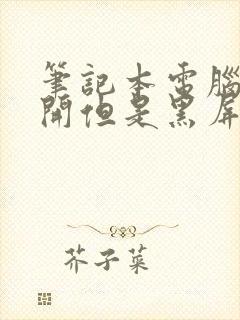 筆記本電腦
開但是黑屏
芥子菜